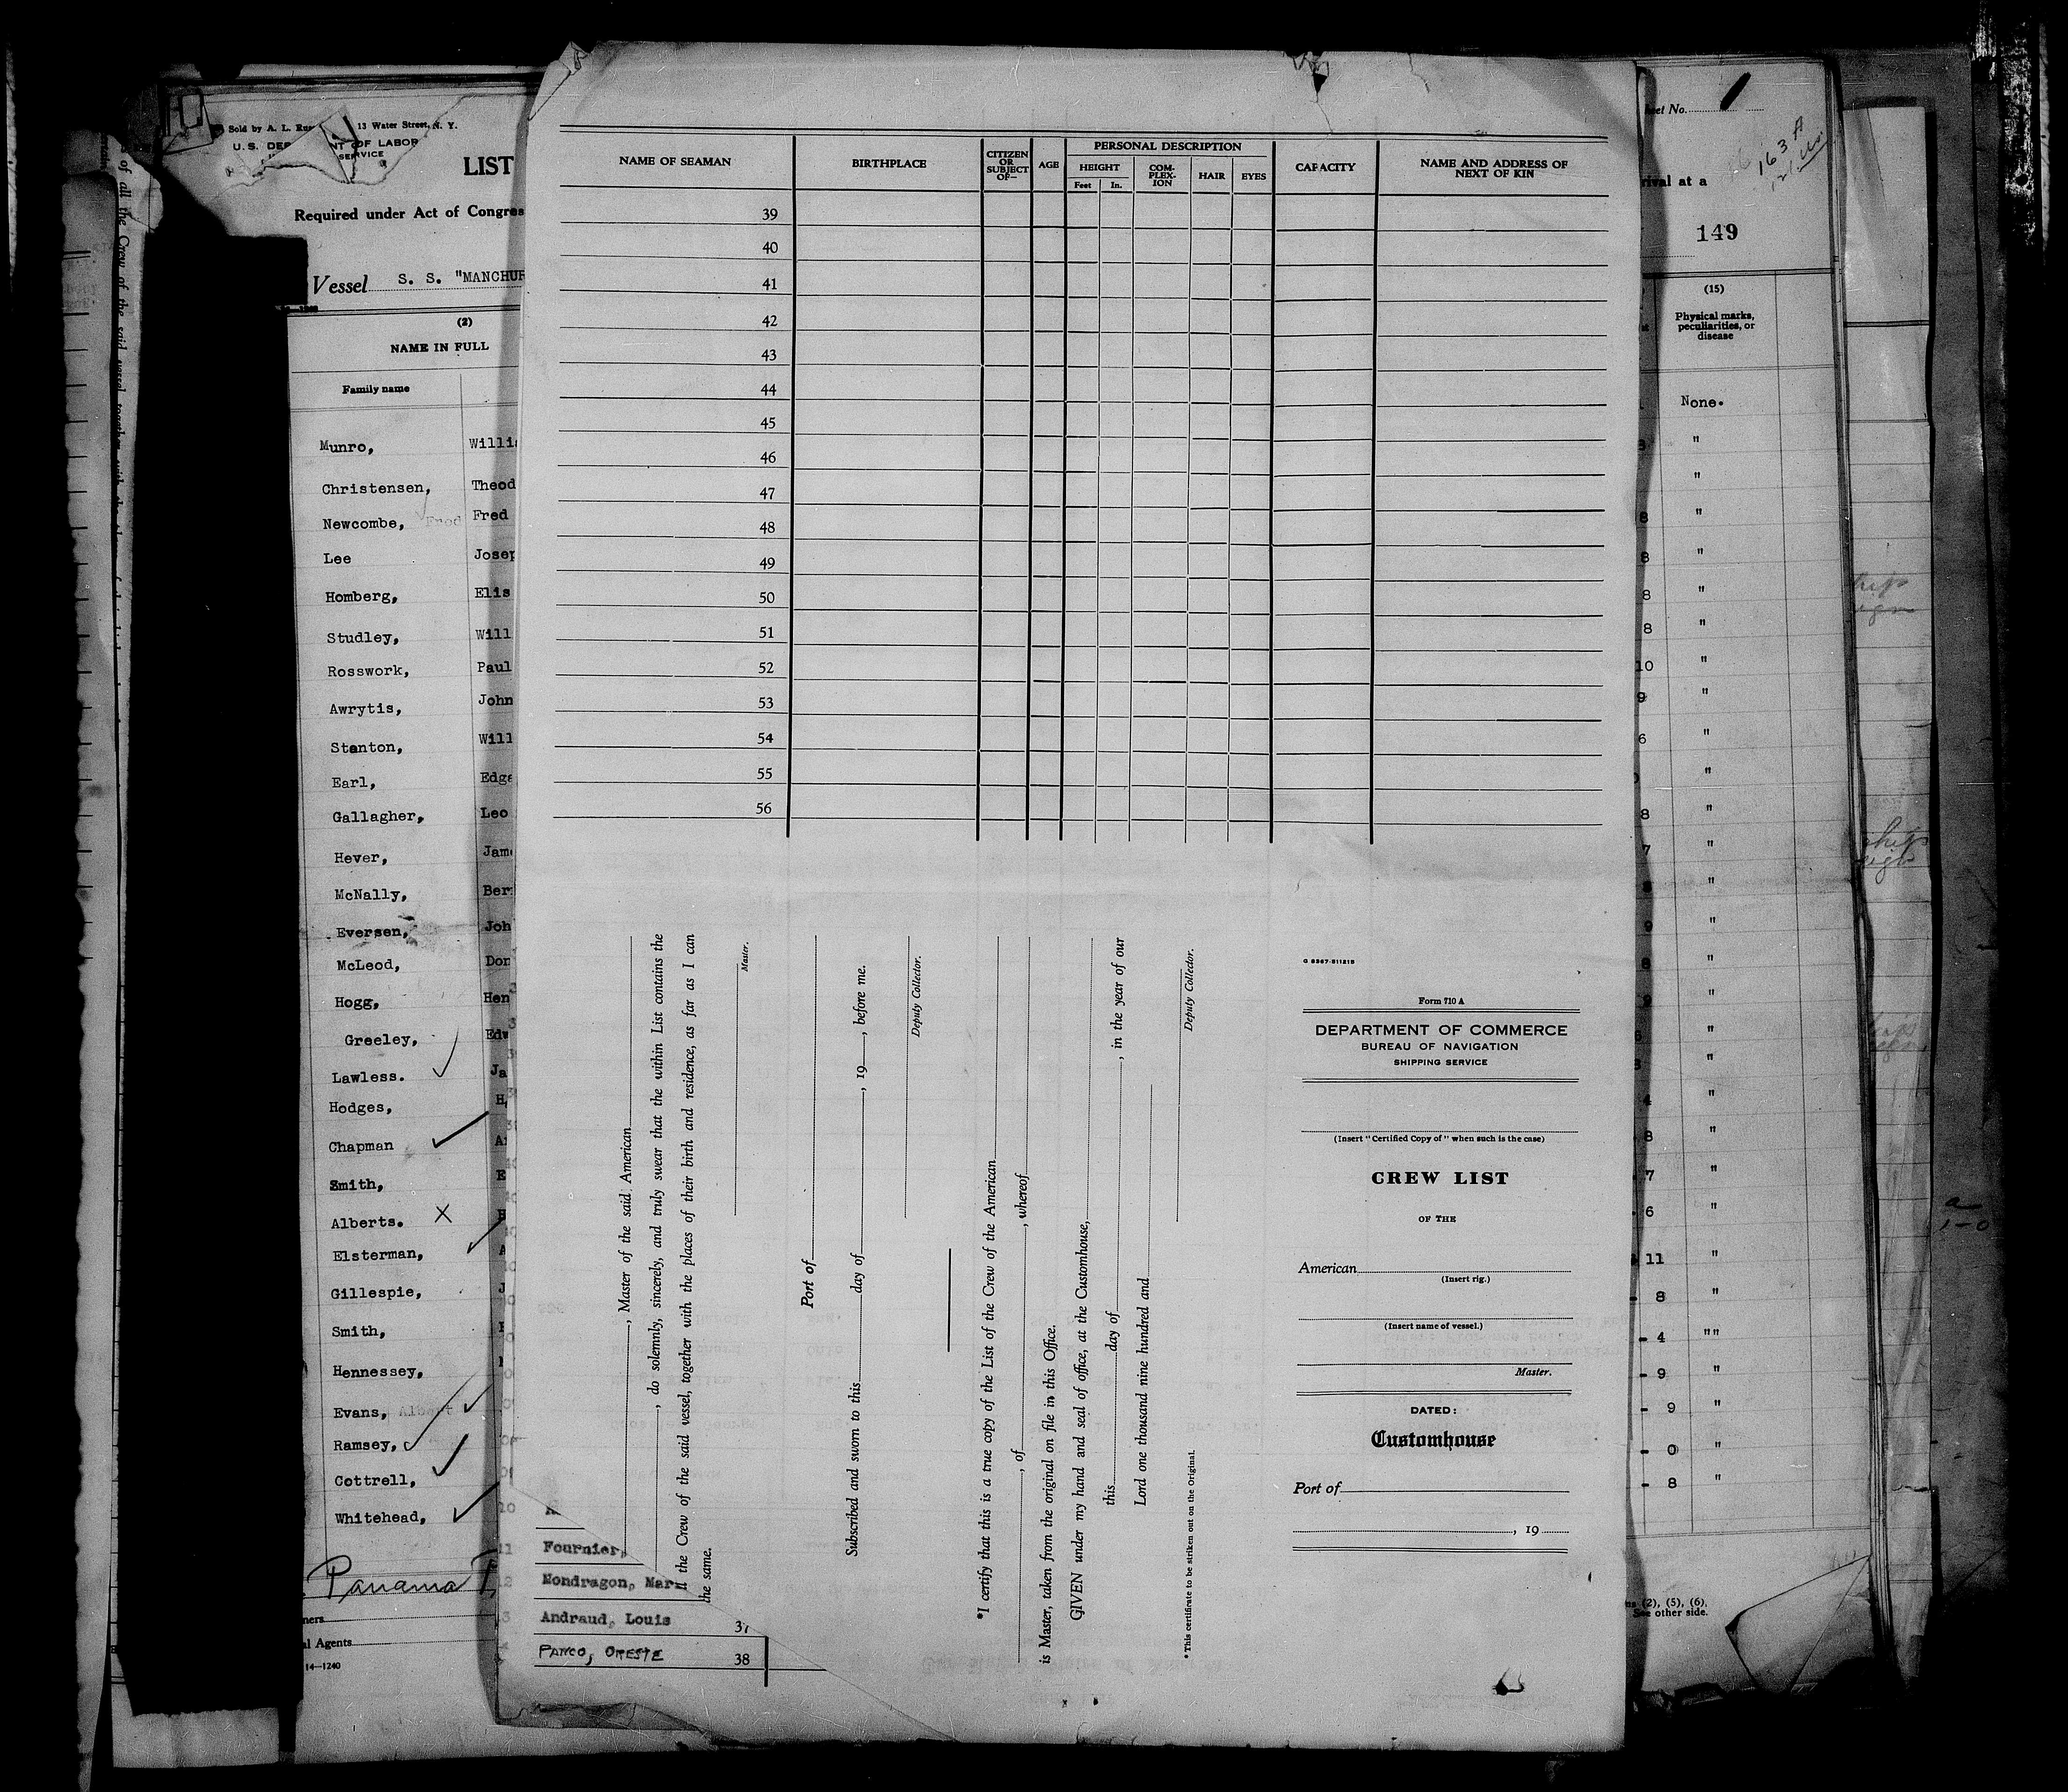 Sold by A. L. 13 Water Street, N. Y.
U. S. OF LABOR
SERVICE
LIST
Required under Act of
Vessel S. S.
(2)
NAME IN FULL
Family name
Munro,
Christensen,
Newcombe, Fred Fred
Lee
Homberg,
Studley,
Rosswork, Paul
Awrytis, John
Stanton,
Earl,
Gallagher, Leo
Hever,
McNally,
Eversen,
McLeod,
Hogg,
Greeley,
Lawless.
Hodges,
Chapman
Smith,
Alberts. X
Elsterman,
Gillespie,
Smith,
Hennessey,
Evans, Albert
Ramsey,
Cottrell,
Whitehead,
Panama
Agents
14—1240
NAME OF SEAMAN
BIRTHPLACE
CITIZEN
OR
SUBJECT
OF—
AGE
PERSONAL DESCRIPTION
HEIGHT
Feet In.
COM-
PLEX-
ION
HAIR
EYES
CAPACITY
NAME AND ADDRESS OF
NEXT OF KIN
39
40
41
42
43
44
45
46
47
48
49
50
51
52
53
54
55
56
, Master of the said American
, do solemnly, sincerely, and truly swear that the within List contains the
the Crew of the said vessel, together with the places of their birth and residence, as far as I can
the same.
Master.
Port of
Subscribed and sworn to this day of , 19 , before me.
Deputy Collector.
*I certify that this is a true copy of the List of the Crew of the American
, of , whereof
is Master, taken from the original on file in this Office.
GIVEN under my hand and seal of office, at the Customhouse,
this day of , in the year of our
Lord one thousand nine hundred and
Deputy Collector.
*This certificate to be striken out on the Original.
Form 710 A
DEPARTMENT OF COMMERCE
BUREAU OF NAVIGATION
SHIPPING SERVICE
(Insert "Certified Copy of" when such is the case)
CREW LIST
OF THE
American
(Insert rig.)
(Insert name of vessel.)
Master.
DATED:
Customhouse
Port of
, 19
Fournier,
Mondragon,
Andraud, Louis
PANCO, ORESTE 38
No.
163 A
at a
149
(15)
Physical marks,
peculiarities, or
disease
None.
"
"
"
"
8 "
8 "
10 "
9 "
6 "
"
8 "
7 "
"
9 "
8 "
"
"
"
4 "
8 "
7 "
6 "
11 "
- 8 "
- 4 ""
- 9 "
- 9 "
- 0 "
- 8 "
(2), (5), (6).
See other side.